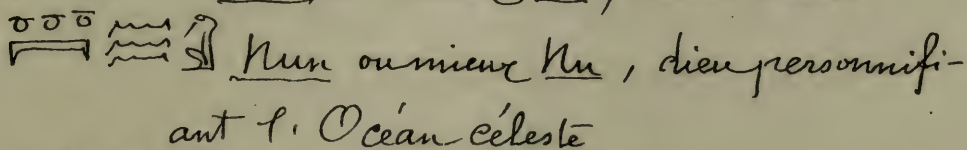 𓏌𓏌𓏌𓇯𓈗𓀭 Nun ou mieux Nu, dieu personnifi-
ant l. Océan céleste